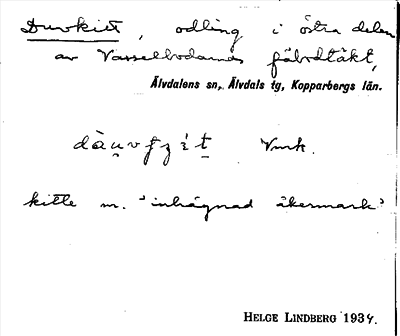 Duvkitt, odling i östra delen
av Vasselbodarnas fäbodtäkt,
Älvdalens sn., Älvdals tg, Kopparbergs län.
Vmk.
kitte m. 'inhägnad åkermark'
HELGE LINDBERG 1934.